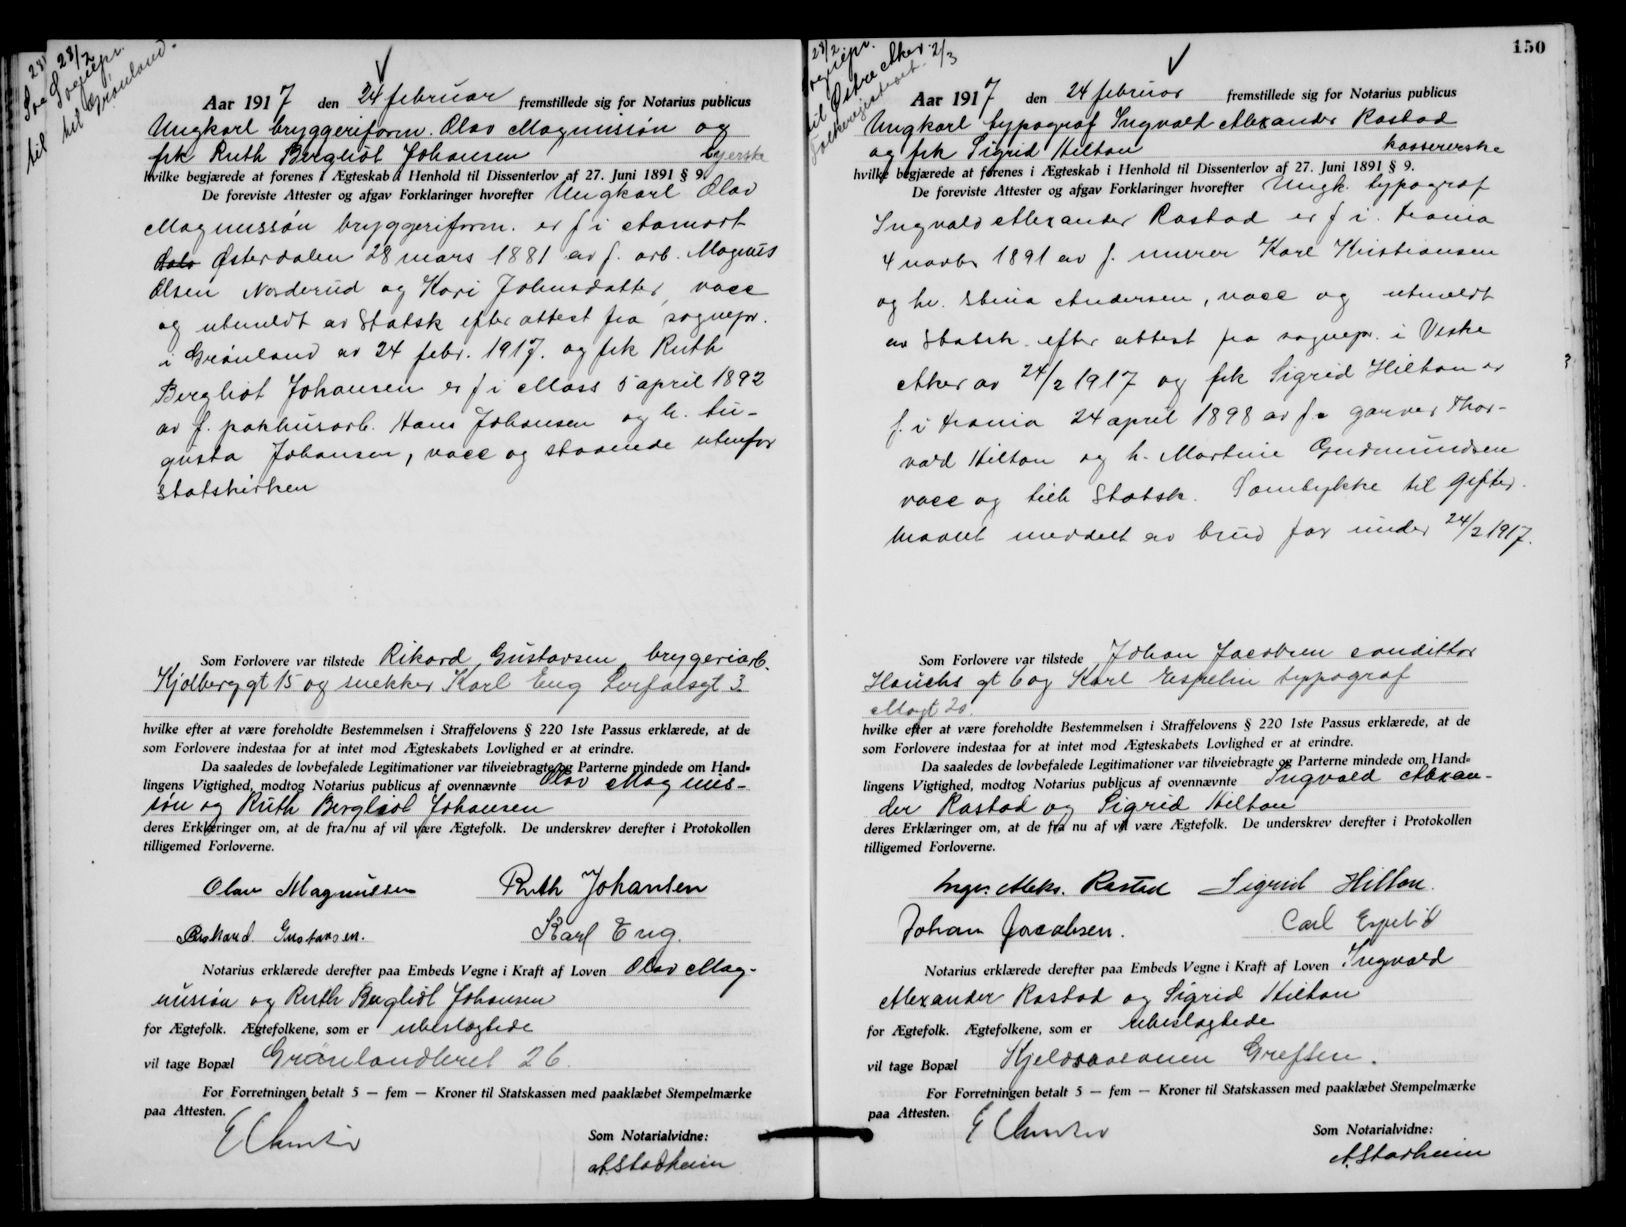 28/2
Sognepr.
til Grønland.
Aar 1917 den 24 februar fremstillede sig for Notarius publicus
Ungkarl bryggeriform. Olav Magnussøn og
frk Ruth Bergliot Johansen syerske
hvilke begjærede at forenes i Ægteskab i Henhold til Dissenterlov af 27. Juni 1891 § 9.
De foreviste Attester og afgav Forklaringer hvorefter Ungkarl Olav
Magnussøn bryggeriform. er f i Aamodt
Østerdalen 28 mars 1881 av f. arb. Magnus
Olsen Norderud og Kari Johnsdatter, vacc
og utmeldt av Statsk efter attest fra sognepr.
i Grønland av 24 febr. 1917. og frk Ruth
Bergliot Johansen er f i Moss 5 april 1892
av f. pakhusarb. Hans Johansen og h. Au-
gusta Johansen, vacc og staaende utenfor
Statskirken
Som Forlovere var tilstede Rikard Gustavsen, bryggeriarb.
Kjølberggt 15 og snekker Karl Eng 3
hvilke efter at være foreholdte Bestemmelsen i Straffelovens § 220 1ste Passus erklærede, at de
som Forlovere indestaa for at intet mod Ægteskabets Lovlighed er at erindre.
Da saaledes de lovbefalede Legitimationer var tilveiebragte og Parterne mindede om Hand-
lingens Vigtighed, modtog Notarius publicus af ovennævnte Olav Magnus-
søn og Ruth Bergliot Johansen
deres Erklæringer om, at de fra nu af vil være Ægtefolk. De underskrev derefter i Protokollen
tilligemed Forloverne.
Olav Magnussen Ruth Johansen
Rikard Gustavsen. Karl Eng.
Notarius erklærede derefter paa Embeds Vegne i Kraft af Loven Olav Mag-
nussøn og Ruth Bergliot Johansen
for Ægtefolk. Ægtefolkene, som er ubeslægtede
vil tage Bopæl Grønlandleret 26.
For Forretningen betalt 5 — fem — Kroner til Statskassen med paaklæbet Stempelmærke
paa Attesten.
Som Notarialvidne:
A. Stadheim
150
28/2
sognepr.
til Vestre Aker.
Folkeregisteret 2/3
Aar 1917 den 24 februar fremstillede sig for Notarius publicus
Ungkarl typograf Ingvald Alexander Rastad
og frk Sigrid Hilton kassererske
hvilke begjærede at forenes i Ægteskab i Henhold til Dissenterlov af 27. Juni 1891 § 9.
De foreviste Attester og afgav Forklaringer hvorefter Ungk. typograf
Ingvald Alexander Rastad er f i. Krania
4 novbr 1891 av f. murer Karl Kristiansen
og hu. Stina Andersen, vacc og utmeldt
av Statsk. efter attest fra sognepr. i Vestre
Aker av 24/2 1917 og frk Sigrid Hilton er
f. i Krania 24 april 1898 av f. garver Thor-
vald Hilton og h. Martine Gudmundsen
vacc og tilh Statsk. Samtykke til gifter-
maalet meddelt av brud far under 24/2 1917.
Som Forlovere var tilstede Johan Jacobsen conditor
Hauchs gt 6 og Karl Espelin typograf
20.
hvilke efter at være foreholdte Bestemmelsen i Straffelovens § 220 1ste Passus erklærede, at de
som Forlovere indestaa for at intet mod Ægteskabets Lovlighed er at erindre.
Da saaledes de lovbefalede Legitimationer var tilveiebragte og Parterne mindede om Hand-
lingens Vigtighed, modtog Notarius publicus af ovennævnte Ingvald Alexan-
der Rastad og Sigrid Hilton
deres Erklæringer om, at de fra nu af vil være Ægtefolk. De underskrev derefter i Protokollen
tilligemed Forloverne.
Ingv. Aleks. Rastad Sigrid Hilton.
Johan Jacobsen. Carl
Notarius erklærede derefter paa Embeds Vegne i Kraft af Loven Ingvald
Alexander Rastad og Sigrid Hilton
for Ægtefolk. Ægtefolkene, som er ubeslægtede
vil tage Bopæl Kjelsaasveien Grefsen.
For Forretningen betalt 5 — fem — Kroner til Statskassen med paaklæbet Stempelmærke
paa Attesten.
Som Notarialvidne:
A. Stadheim